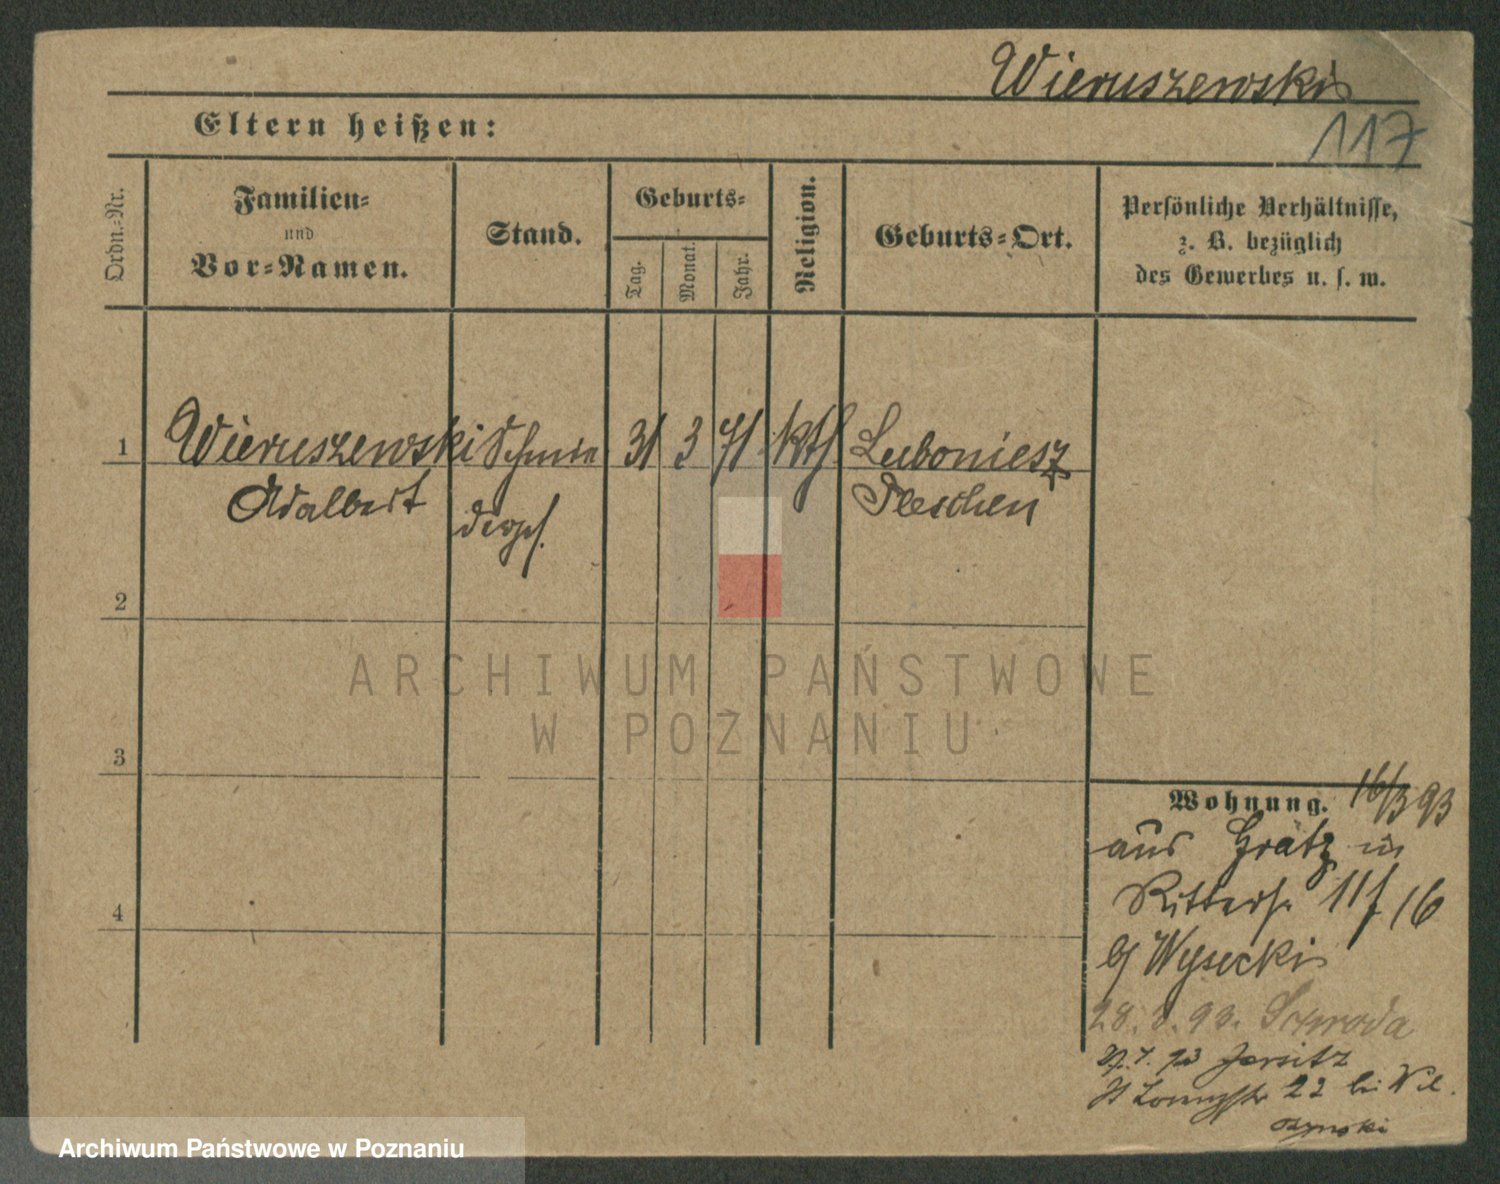 Wieruszewski
117
Eltern heißen:
Ordn.-Nr.
Familien-
und
Vor-Namen.
Stand.
Geburts-
Tag.
Monat.
Jahr.
Religion.
Geburts-Ort.
Persönliche Verhältnisse,
z. B. bezüglich
des Gewerbes u. s. w.
1 Wieruszewski Schmie 31 3 71 kth Luboniesz
Adalbert degs. Pleschen
2
ARCHIWUM PAŃSTWOWE
W POZNANIU
3
Wohnung. 16/3 93
aus Grätz in
Ritterst 11 / 16
b/ Wysecki
4
28. 8. 93. Szroda
7. 93 Jersitz
22 bei
Archiwum Państwowe w Poznaniu